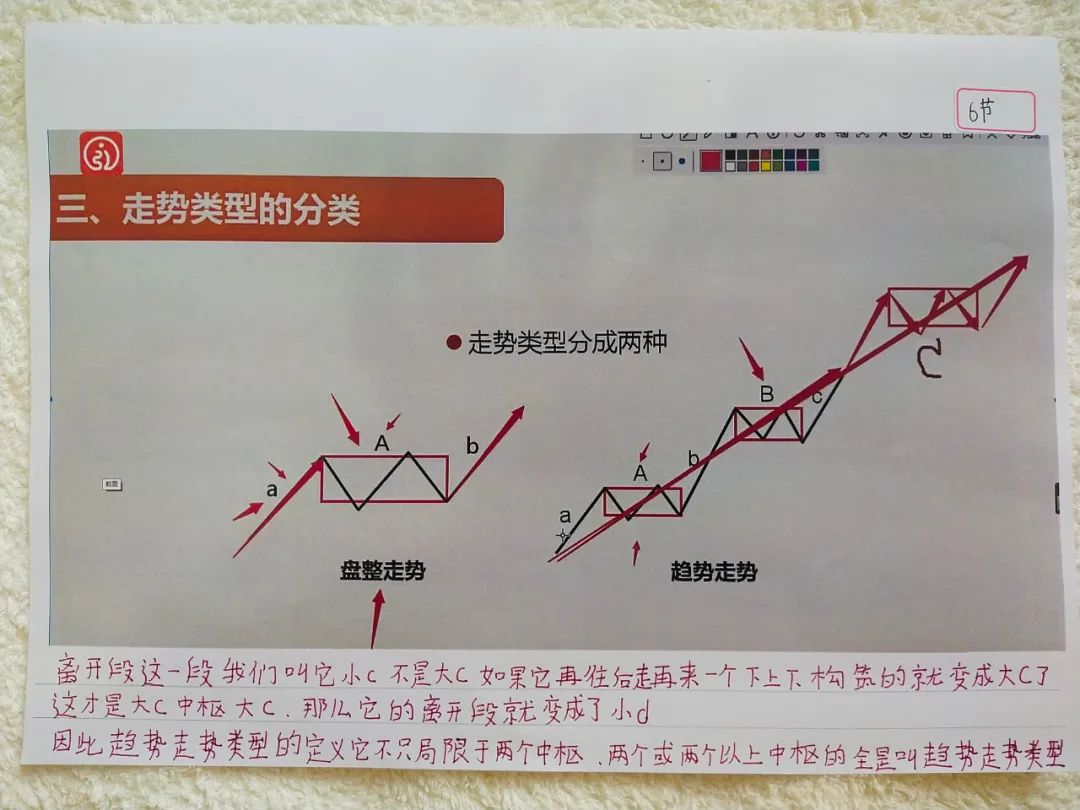 6节
三、走势类型的分类
● 走势类型分成两种
C
B
c
A
b
A
b
a
a
盘整走势
趋势走势
离开段这一段我们叫它小c 不是大C 如果它再往后走再来一个下上下构筑的就变成大C了
这才是大C中枢大C．那么它的离开段就变成了小d
因此趋势走势类型的定义它不只局限于两个中枢、两个或两个以上中枢的全是叫趋势走势类型